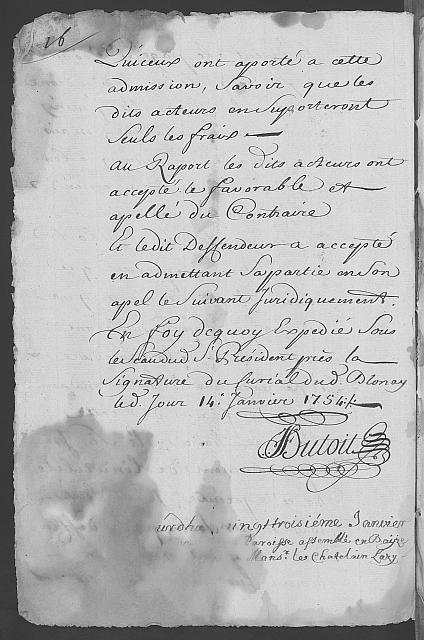 16
Quiceux ont aporté a cette
admission, Savoir que les
dits acteurs en Suporteront
Seuls les fraix
au Raport les dits acteurs ont
accepté le favorable et
apellé du Contraire
Et ledit Deffendeur a accepté
en admettant Sapartie en Son
apel le Suivant Juridiquement.
En foy dequoy Expedié Sous
le Sr. President près la
Signature du Curial dud. Blonay
led. Jour 14e. Janvier 1754
Dutoit
vingttroisiéme Janvier
Paroisse assemblé en
Monsr. le Chatelain